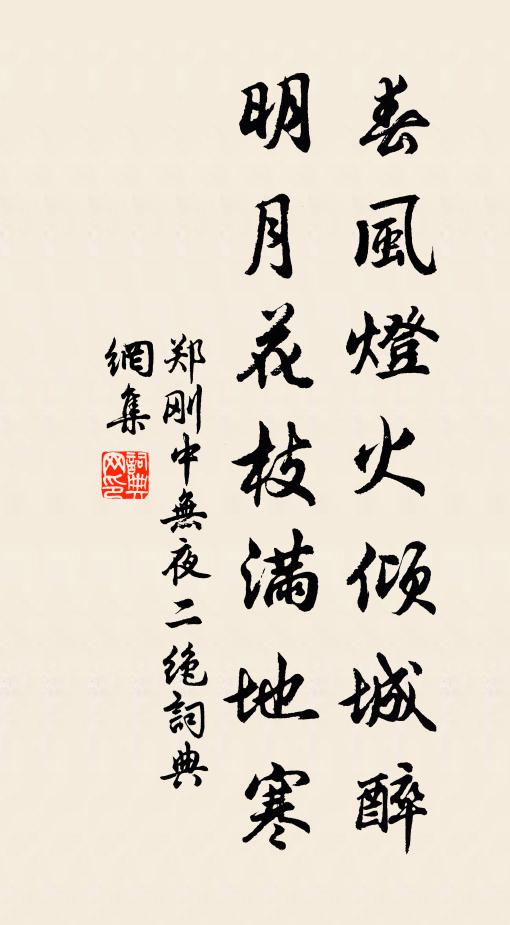 春風燈火傾城醉
明月花枝滿地寒
郑刚中無夜二绝詞典
網集
詞典
网印